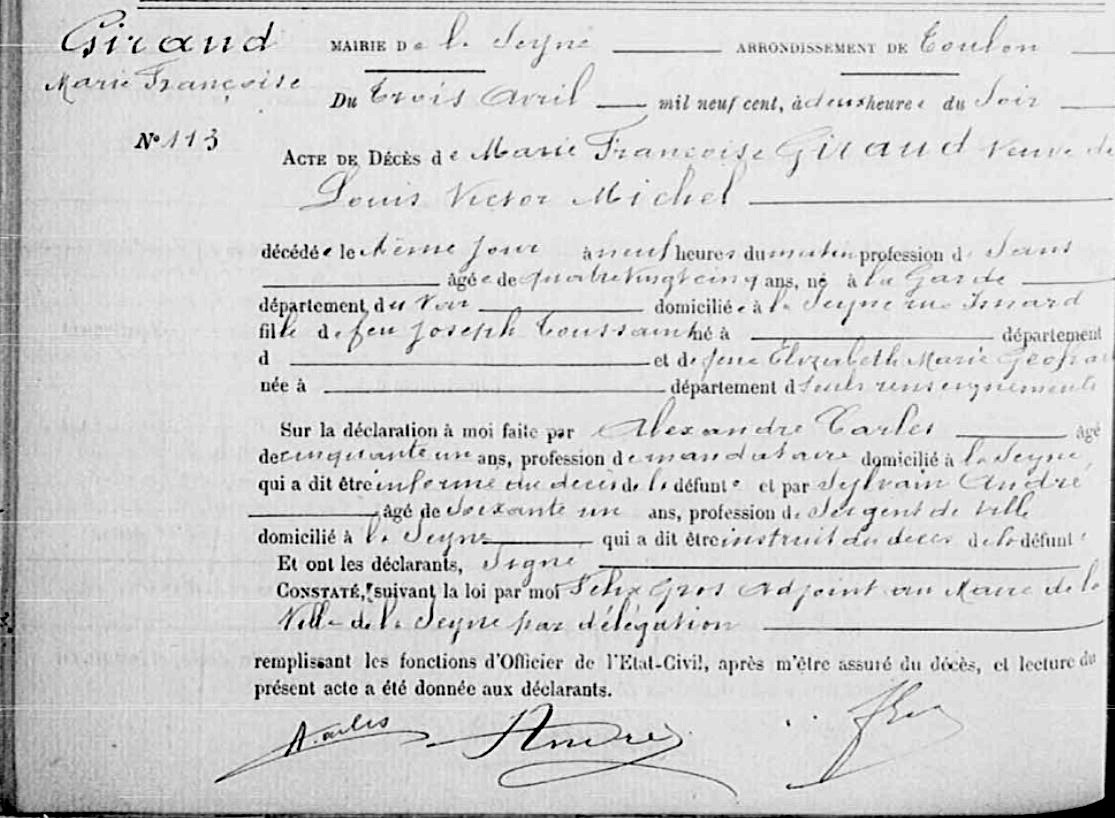 Giraud
Marie Françoise
N° 113
MAIRIE De la Seyne ARRONDISSEMENT DE Toulon
Du trois Avril mil neuf cent, à deux heures du Soir
ACTE DE DÉCÈS de Marie Françoise GIRAUD Veuve de
Louis Victor Michel
décédée le même jour à neuf heures du matin profession d. Sans
âgée de quatre vingt cinq ans, né à la Garde
département du Var domiciliée à la Seyne rue Isnard
fille de feu Joseph Toussaint né à département
d et de feue Elizabeth Marie
née à département d seuls renseignements
Sur la déclaration à moi faite par Alexandre Carles âgé
de cinquante un ans, profession de mandataire domicilié à la Seyne,
qui a dit être informé du décès de la défunte et par Sylvain André
âgé de Soixante un ans, profession de Sergent de ville
domicilié à la Seyne qui a dit être instruit du décès de la défunte
Et ont les déclarants, Signé
CONSTATÉ, suivant la loi par moi Félix Gros Adjoint au Maire de la
Ville de la Seyne par délégation
remplissant les fonctions d'Officier de l'Etat-Civil, après m'être assuré du décès, et lecture du
présent acte a été donnée aux déclarants.
A. Carles André